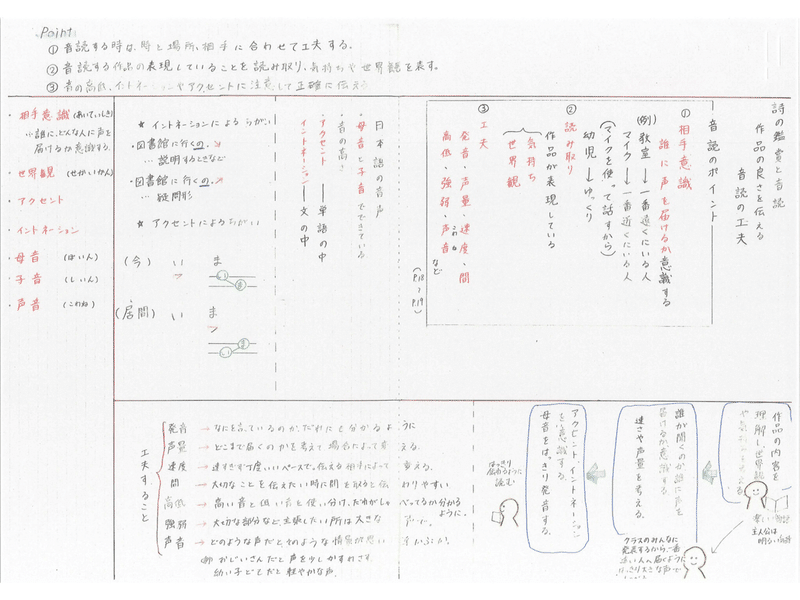 Point
① 音読する時は、時と場所、相手に合わせて工夫する。
② 音読する作品の表現していることを読み取り、気持ちや世界観を表す。
③ 音の高低、イントネーションやアクセントに注意して正確に伝える
詩の鑑賞と音読
作品の良さを伝える
音読の工夫
音読のポイント
① 相手意識
誰に声を届けるか意識する
(例) 教室→一番遠くにいる人
マイク→一番近くにいる人
(マイクを使って話すから)
幼児→ゆっくり
② 読み取り
作品が表現している
気持ち
世界観
③ 工夫
発音・声量・速度・間
高低・強弱・声音 など
このね
(P.18~P.19)
日本語の音声
・母音と子音でできている
・音の高さ
・アクセント——単語の中
イントネーション——文の中
★ イントネーションによるちがい
・図書館に行くの。
… 説明するときなど
・図書館に行くの。
… 疑問形
★ アクセントによるちがい
(今) い ま
(居間) い ま
・相手意識 (あいていしき)
誰に、どんな人に声を
届けるか意識する。
・世界観 (せかいかん)
・アクセント
・イントネーション
・母音 (ぼいん)
・子音 (しいん)
・声音 (こわね)
作品の内容を
理解し、世界観
誰が聞くのか誰に声を
届けるか意識する
速さや声量を考える。
アクセント、イントネーション
を意識する。
母音をはっきり発音する。
はっきり
伝わるように
読む
主人公は
明るい
クラスのみんなに
発表するから一番
遠い人へ届くように
はっきり大きな声で
工夫すること
発音 → なにを言っているのか、だれにでも分かるように
声量 → どこまで届くのかを考えて場合によって変える。
速度 → 速すぎず丁度いいペースで、伝える相手によって変える。
間 → 大切なことを伝えたい時に間を取ると伝わりやすい
高低 → 高い音と低い音を使い分け、だれがしゃべってるか分かるように。
強弱 → 大切な部分など主張したい所は大きな声で。
声音 → どのような声だとそのような情景が思い
例 おじいさんだと声を少しかすれさす
幼い子どもだと軽やかな声。